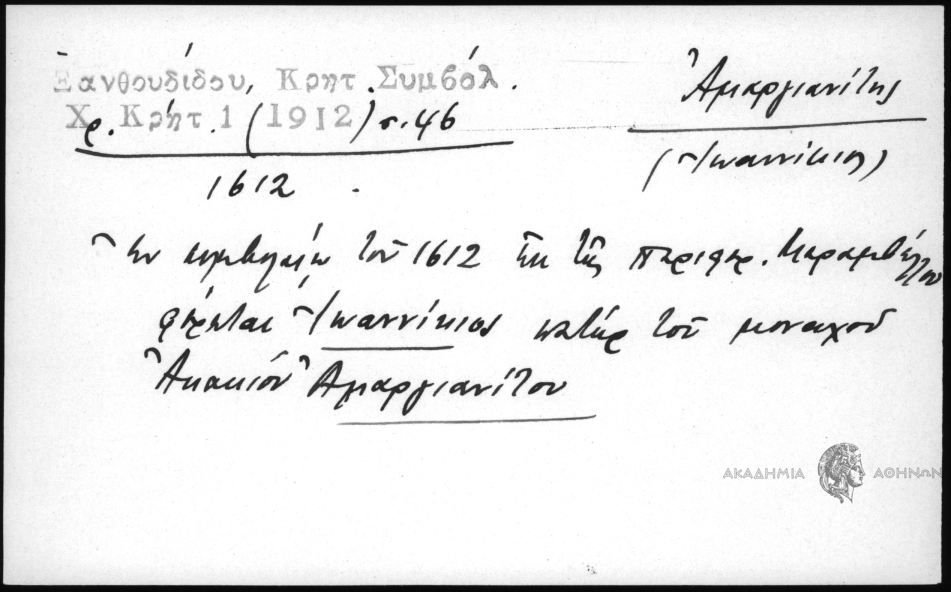 Ξανθουδίδου, Κρητ. Συμβόλ.
Χρ. Κρήτ. 1 (1912) σ. 46
1612.
Ἀμαργιανίτης
(Ἰωαννίκιος)
Ἐν συμβολαίῳ τοῦ 1612 ἐκ τῆς περιφερ. Μεραμβέλλου
φέρεται Ἰωαννίκιος πατήρ τοῦ μοναχοῦ
Ἀκακίου Ἀμαργιανίτου
ΑΚΑΔΗΜΙΑ ΑΘΗΝΩΝ